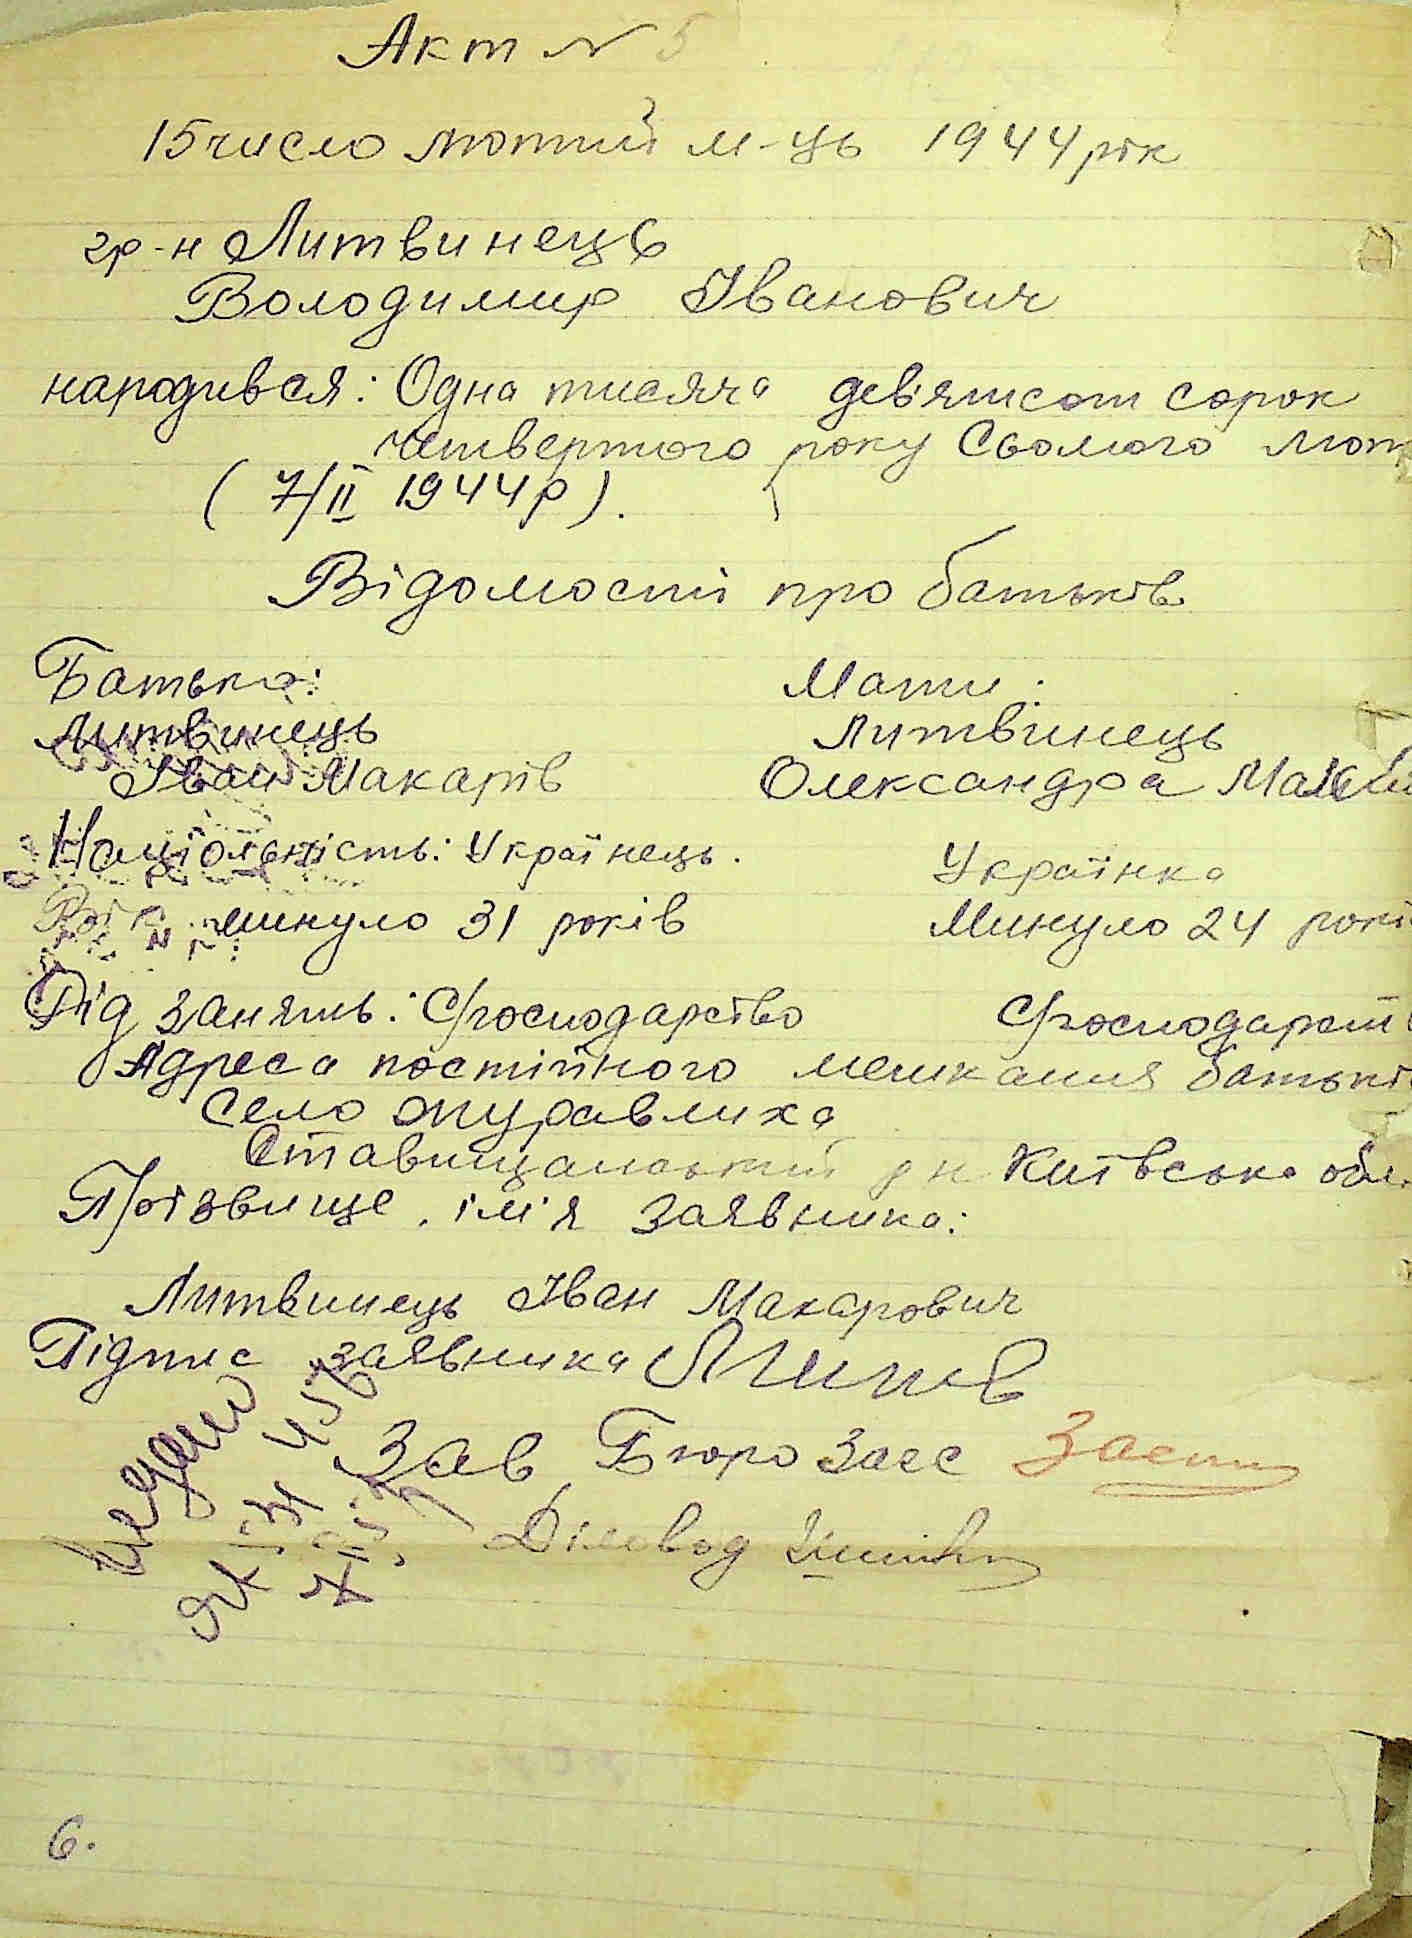 Акт № 5
15 число лютий м-ць 1944 рік
гр-н Литвинець
Володимир Іванович
народився: Одна тисяча девятсот сорок
четвертого року Сьомого лют
( 7/II 1944 р ).
Відомості про батьків
Батько: Мати:
Литвинець Литвинець
Іван Макарів Олександра
Націольність: Українець. Українка
Вік минуло 31 років Минуло 24 рокі
Рід занять: С/господарство С/господарст
Адреса постійного мешкання батькі
Село Журавлиха
Ставищанський рн Київська обл.
Прізвище, імя заявника:
Литвинець Іван Макарович
Підпис заявника
Зав Бюро Загс
Діловод
6.